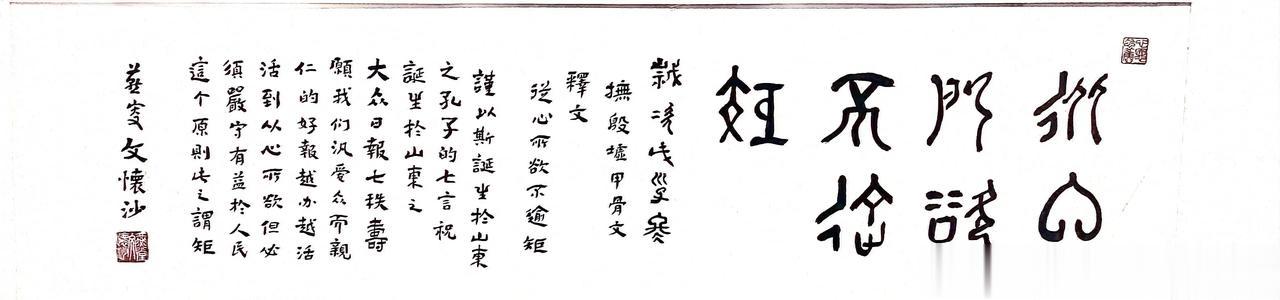 從心
所欲
不逾
矩
撫殷墟甲骨文
釋文
從心所欲不逾矩
謹以斯誕生於山東
之孔子的七言祝
誕生於山東之
大众日報七秩壽
願我们汎愛众而親
仁的好報越办越活
活到从心所欲但必
須嚴守有益於人民
這个原則此之謂矩
燕叟文懷沙